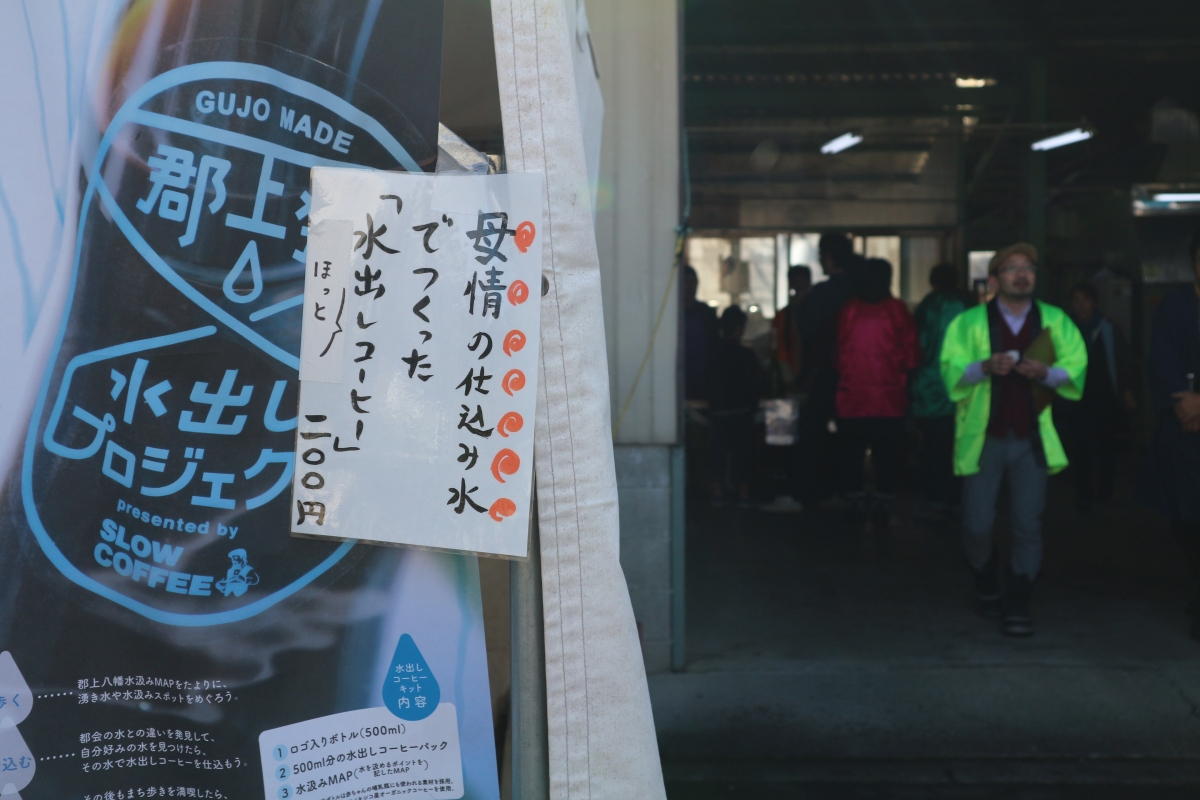 GUJO MADE
郡上
水出し
プロジェク
presented by
SLOW
COFFEE
母情の仕込み水
でつくった
「水出しコーヒー」
ほっと
二〇〇円
歩く
郡上八幡水汲みMAPをたよりに、
湧き水や水汲みスポットをめぐろう。
込む
都会の水との違いを発見して、
自分好みの水を見つけたら、
その水で水出しコーヒーを仕込もう。
その後もまち歩きを満喫したら、
水出し
コーヒー
キット
内容
1 ロゴ入りボトル(500ml)
2 500ml分の水出しコーヒーパック
3 水汲みMAP(水を汲めるポイントを
記したMAP)